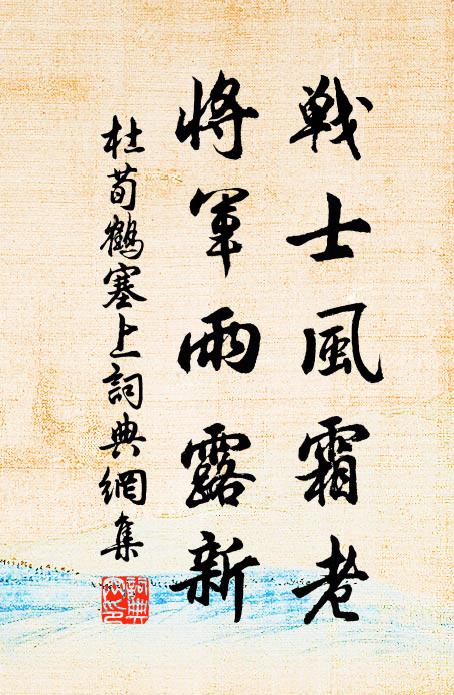 戰士風霜老
將軍雨露新
杜荀鶴塞上詞典網集